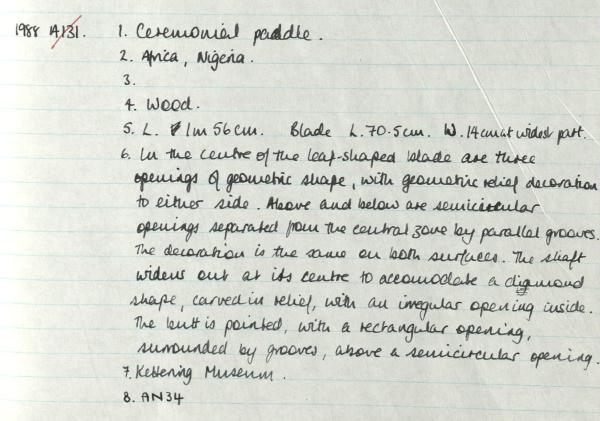 1988 A131. 1. Ceremonial paddle.
2. Africa, Nigeria.
3.
4. Wood.
5. L. 1m 56cm. Blade L. 70.5cm. W. 14cm at widest part.
6. In the centre of the leaf-shaped blade are three
openings of geometric shape, with geometric relief decoration
to either side. Above and below are semicircular
openings separated from the central zone by parallel grooves.
The decoration is the same on both surfaces. The shaft
widens out at its centre to accomodate a diamond
shape, carved in relief, with an irregular opening inside.
The butt is pointed, with a rectangular opening,
surrounded by grooves, above a semicircular opening.
7. Kettering Museum.
8. AN34